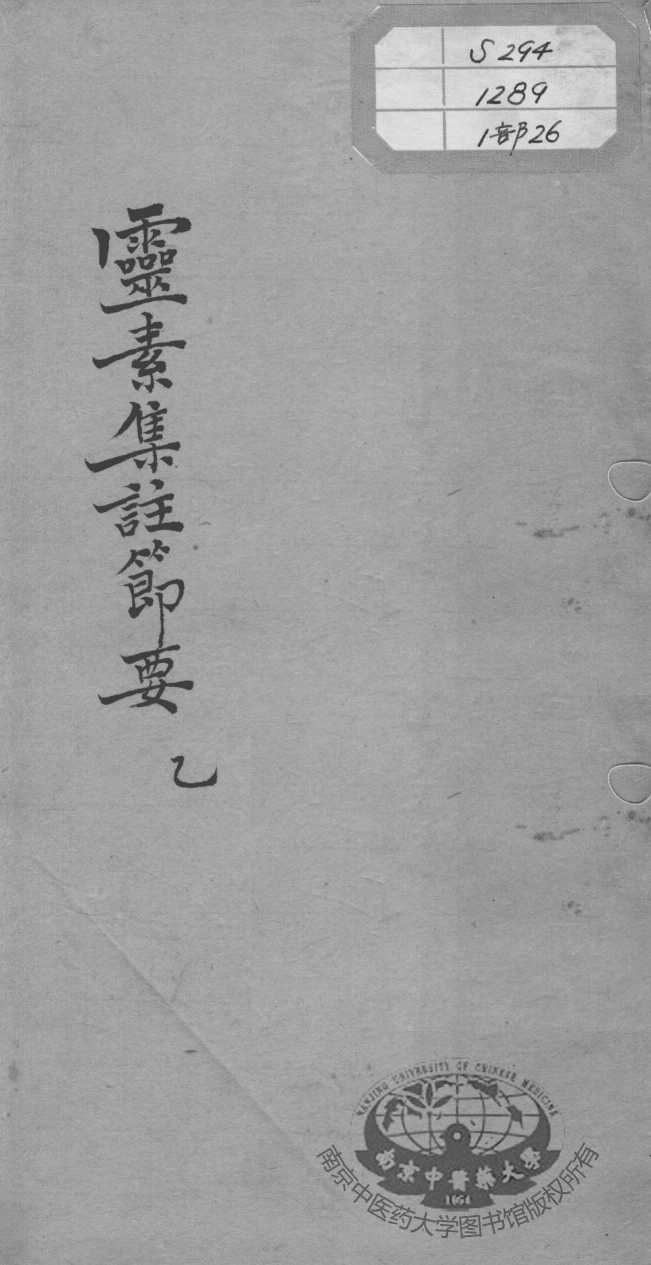 S294
1289
1部26
靈素集註節要
乙
NANJING UNIVERSITY OF CHINESE MEDICINE
南京中醫藥大學
1954
南京中医药大学图书馆版权所有